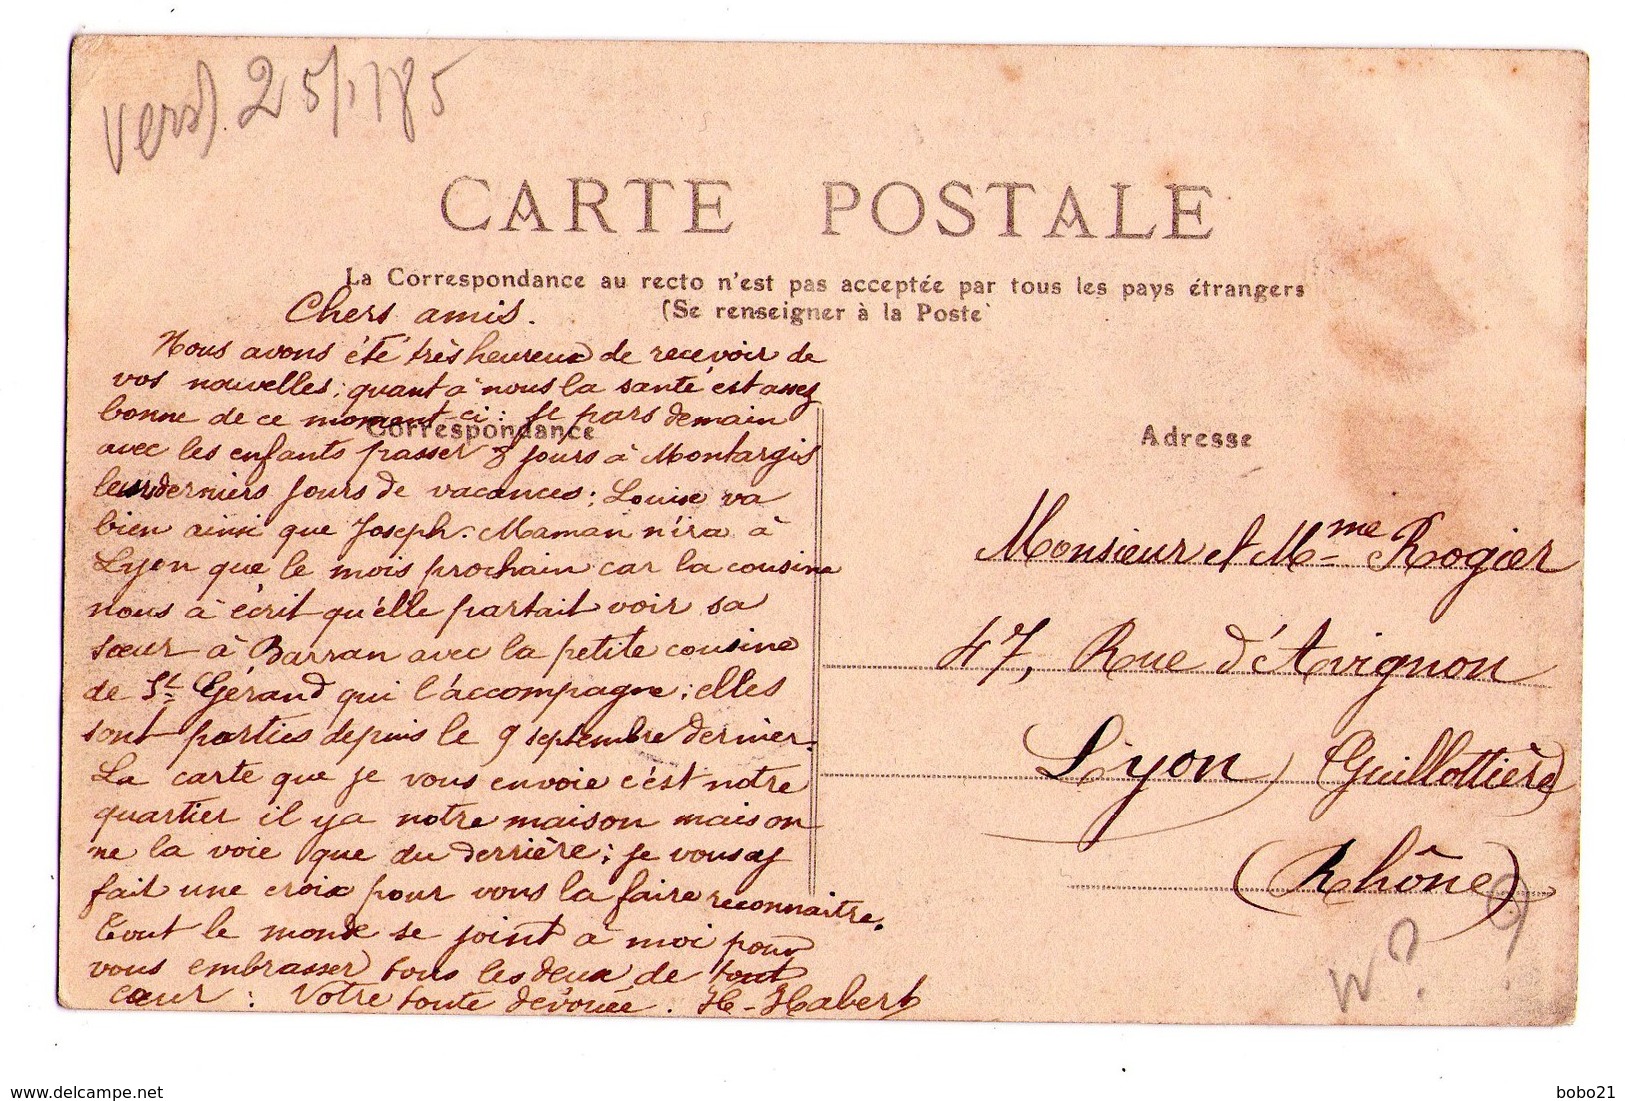 25/1785
CARTE POSTALE
La Correspondance au recto n'est pas acceptée par tous les pays étrangers
(Se renseigner à la Poste
Chers amis.
Nous avons été très heureux de recevoir de
vos nouvelles; quant à nous la santé est assez
bonne de ce moment-ci: je pars demain
Correspondance
avec les enfants passer 8 jours à Montargis
les derniers jours de vacances; Louise va
bien ainsi que Joseph. Maman n'ira à
Lyon que le mois prochain car la cousine
nous à écrit qu'elle partait voir sa
sœur à Barran avec la petite cousine
de St Gérand qui l'accompagne; elles
sont parties depuis le 9 septembre dernier.
La carte que je vous envoie c'est notre
quartier il y a notre maison mais on
ne la voie que du derrière; je vous ai
fait une croix pour vous la faire reconnaitre.
Tout le monde se joint à moi pour
vous embrasser tous les deux de tout
cœur: Votre toute dévouée. H. Habert
Adresse
Monsieur et Mme Rogier
47, Rue d'Avignon
Lyon Guillottière
(Rhône)
bobo21